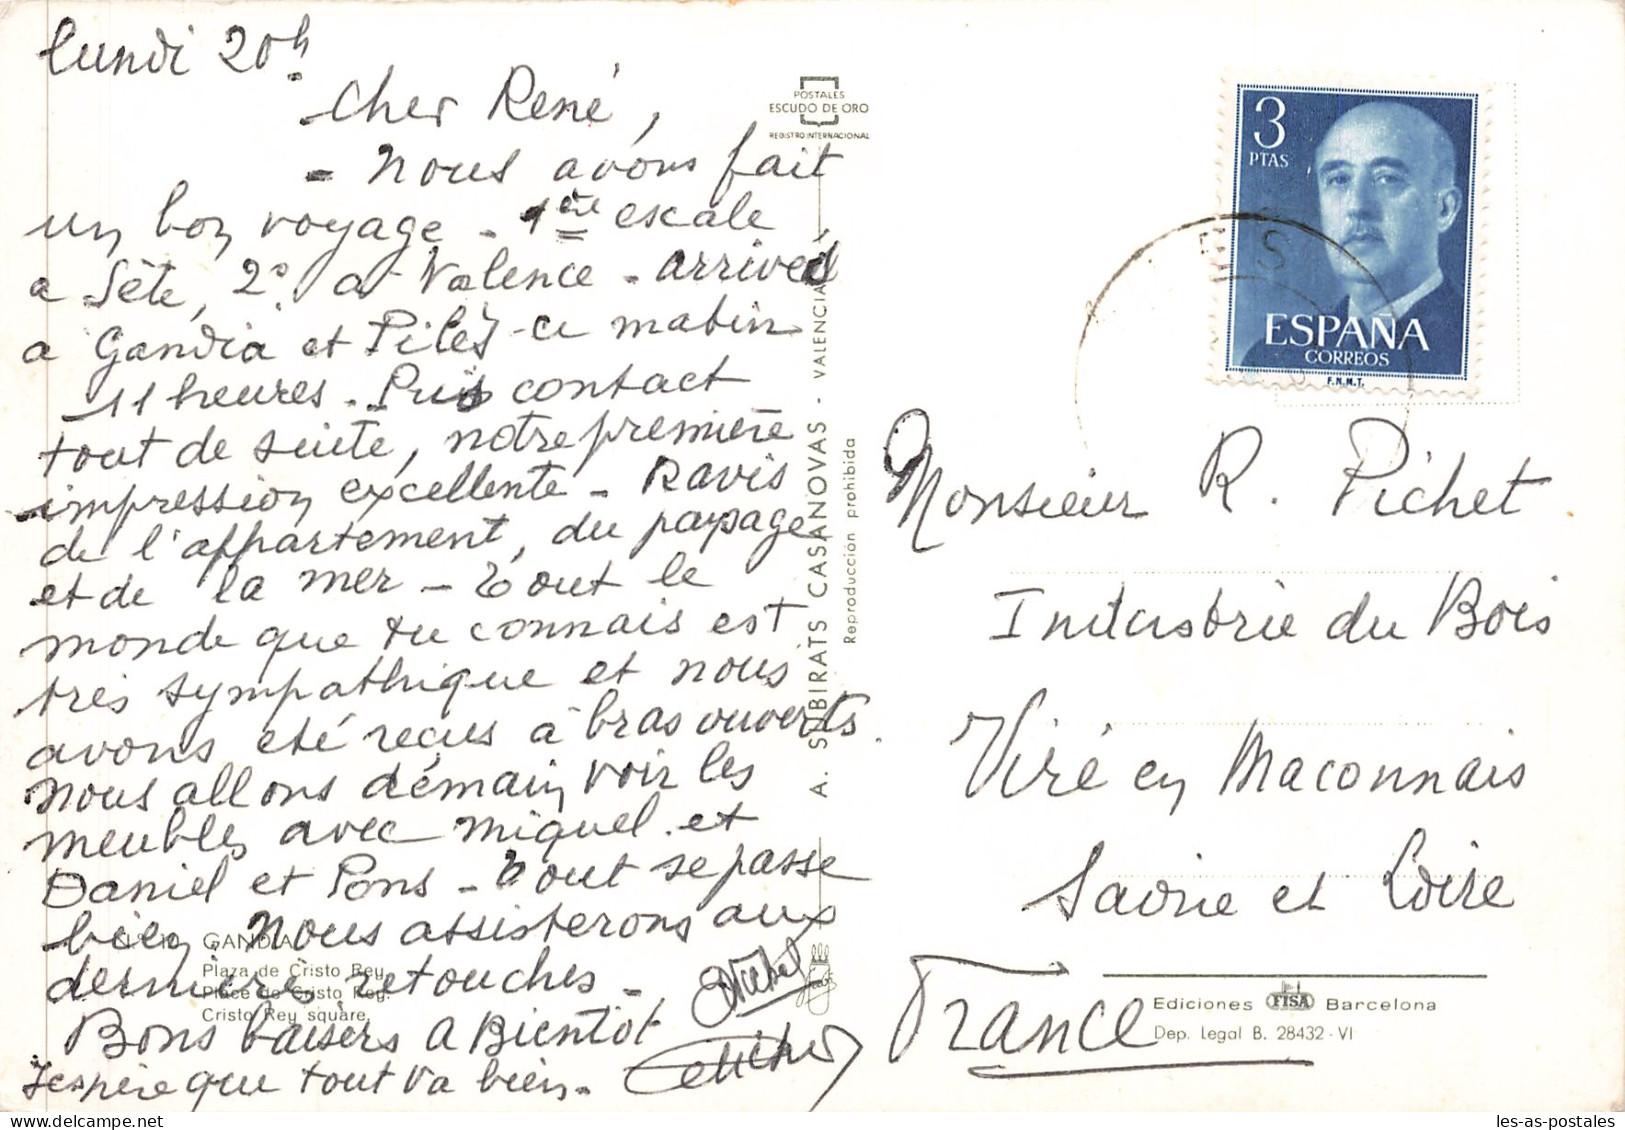 lundi 20h.
Cher René,
- Nous avons fait
un bon voyage - 1ère escale
a Sète, 2° a Valence - arrivés
a Gandia et Piles ce matin
11 heures - Pris contact
tout de suite, notre première
impression excellente - Ravis
de l'appartement, du paysage
et de la mer - Tout le
monde que tu connais est
très sympathique et nous
avons été reçus à bras ouverts.
Nous allons démain voir les
meubles avec Miquel et
Daniel et Pons - Tout se passe
bien Nous assisterons aux
dernière retouches -
Bons baisers a Bientôt
J'espère que tout va bien -
Michel
GANDIA
Plaza de Cristo Rey.
Place de Cristo Rey.
Cristo Rey square.
POSTALES
ESCUDO DE ORO
REGISTRO INTERNACIONAL
A. SUBIRATS CASANOVAS - VALENCIA
Reproducción prohibida
3
PTAS
ESPAÑA
CORREOS
F.N.M.T.
Monsieur R. Pichet
Industrie du Bois
Viré en Maconnais
Saône et Loire
France
Ediciones FISA Barcelona
Dep. Legal B. 28432 - VI
les-as-postales